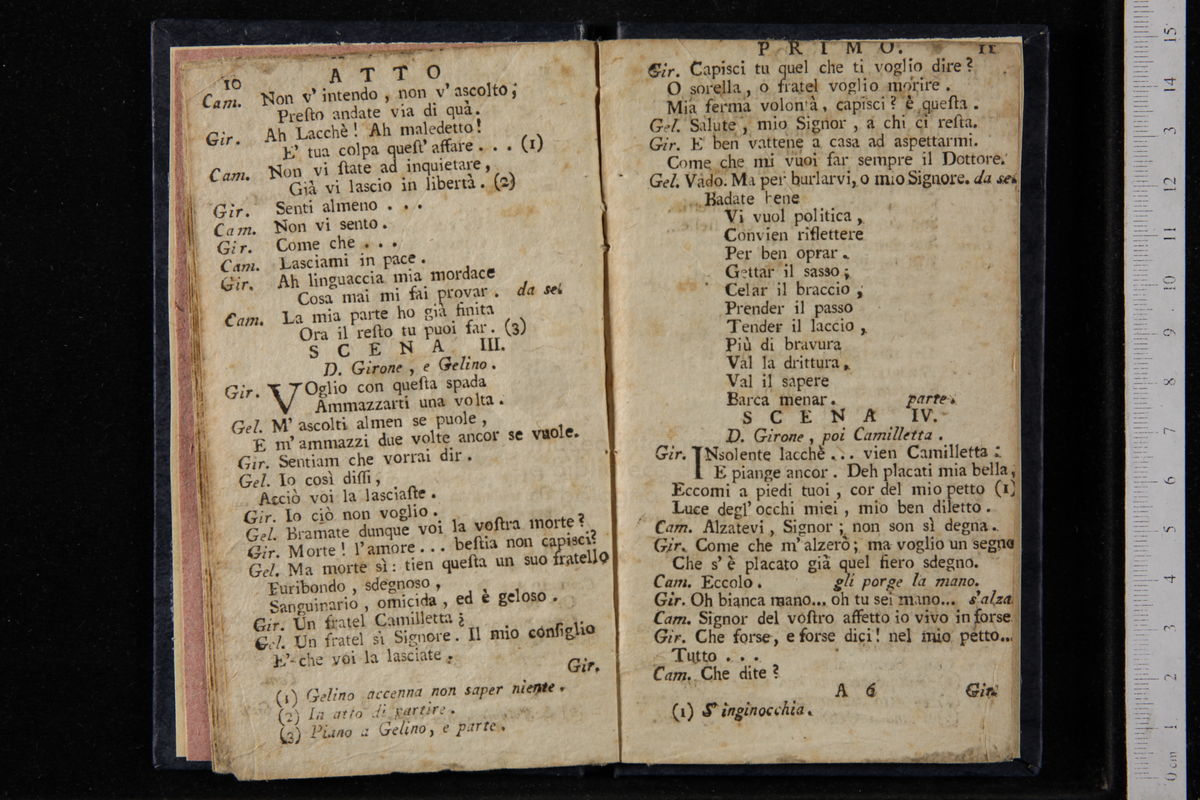 10 ATTO
Cam. Non v' intendo , non v' ascolto ;
Preſto andate via di quà.
Gir. Ah Lacchè ! Ah maledetto !
E' tua colpa queſt' affare . . . (1)
Cam. Non vi ſtate ad inquietare,
Già vi lascio in libertà . (2)
Gir. Senti almeno . . .
Cam. Non vi sento .
Gir. Come che . . .
Cam. Lasciami in pace .
Gir. Ah linguaccia mia mordace
Cosa mai mi fai provar . da sei
Cam. La mia parte ho già finita
Ora il reſto tu puoi far. (3)
SCENA III.
D. Girone , e Gelino .
Gir. VOglio con queſta spada
Ammazzarti una volta .
Gel. M' ascolti almen se puole ,
E m' ammazzi due volte ancor se vuole.
Gir. Sentiam che vorrai dir .
Gel. Io così diſſi ,
Acciò voi la lasciaſte .
Gir. Io ciò non voglio .
Gel. Bramate dunque voi la voſtra morte ?
Gir. Morte ! l'amore . . . beſtia non capisci?
Gel. Ma morte sì : tien queſta un suo fratello
Furibondo , sdegnoso ,
Sanguinario , omicida , ed è geloso .
Gir. Un fratel Camilletta ?
Gel. Un fratel sì Signore . Il mio configlio
E' che voi la lasciate .
Gir.
(1) Gelino accenna non saper niente .
(2) In atto di partire .
(3) Piano a Gelino, e parte .
PRIMO. 11
Gir. Capisci tu quel che ti voglio dire ?
O sorella , o fratel voglio morire .
Mia ferma volontà, capisci ? è queſta .
Gel. Salute , mio Signor , a chi ci reſta.
Gir. E ben vattene a casa ad aspettarmi.
Come che mi vuoi far sempre il Dottore.
Gel. Vado. Ma per burlarvi, o mio Signore. da sei
Badate bene
Vi vuol politica ,
Convien riflettere
Per ben oprar .
Gettar il sasso ;
Celar il braccio ,
Prender il passo
Tender il laccio ,
Più di bravura
Val la drittura ,
Val il sapere
Barca menar . parte .
SCENA IV.
D. Girone , poi Camilletta .
Gir. INsolente lacchè . . . vien Camilletta :
E piange ancor . Deh placati mia bella ,
Eccomi a piedi tuoi , cor del mio petto (1)
Luce degl' occhi miei , mio ben diletto .
Cam. Alzatevi , Signor ; non son sì degna .
Gir. Come che m' alzerò ; ma voglio un segno
Che s' è placato già quel fiero sdegno.
Cam. Eccolo . gli porge la mano.
Gir. Oh bianca mano... oh tu sei mano... s'alza
Cam. Signor del voſtro affetto io vivo in forse
Gir. Che forse, e forse dici ! nel mio petto...
Tutto . . .
Cam. Che dite ?
A 6 Gir.
(1) S' inginocchia .